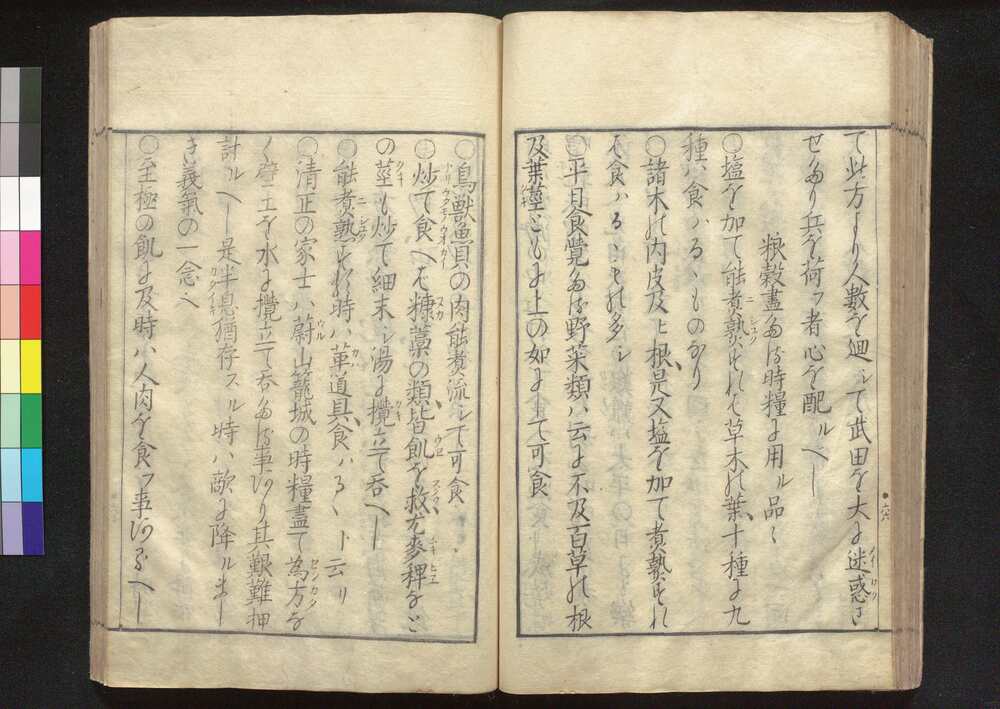 て此方より人数を廻シて武田を大に迷惑さ
せたり兵を荷フ者心を配ルヘし
粮穀盡たる時糧に用ル品々
○塩を加て能煮熟すれは草木の葉十種に九
種ハ食ハるゝものなり
○諸木の内皮及上根是又塩を加て煮熟すれ
は食ハるゝもの多シ
○平日食覺たる野菜類ハ云に不及百草の根
及葉莖ともに上の如に食て可食
○鳥獸魚貝の肉能煮流シて可食
○炒て食へは糠藁の類皆飢を救ナ麥稗なと
の莖も炒て細末シ湯に攪立て呑へし
○能煮熟する時ハ革道具食ハるゝト云リ
○清正の家士ハ蔚山籠城の時糧盡て為方な
く壁土を水に攪立て呑たる事あり其艱難押
計ルへし是半息猶存スル時ハ敵に降ルまし
き義氣の一念也
○至極の飢に及時ハ人肉を食フ事あるへし